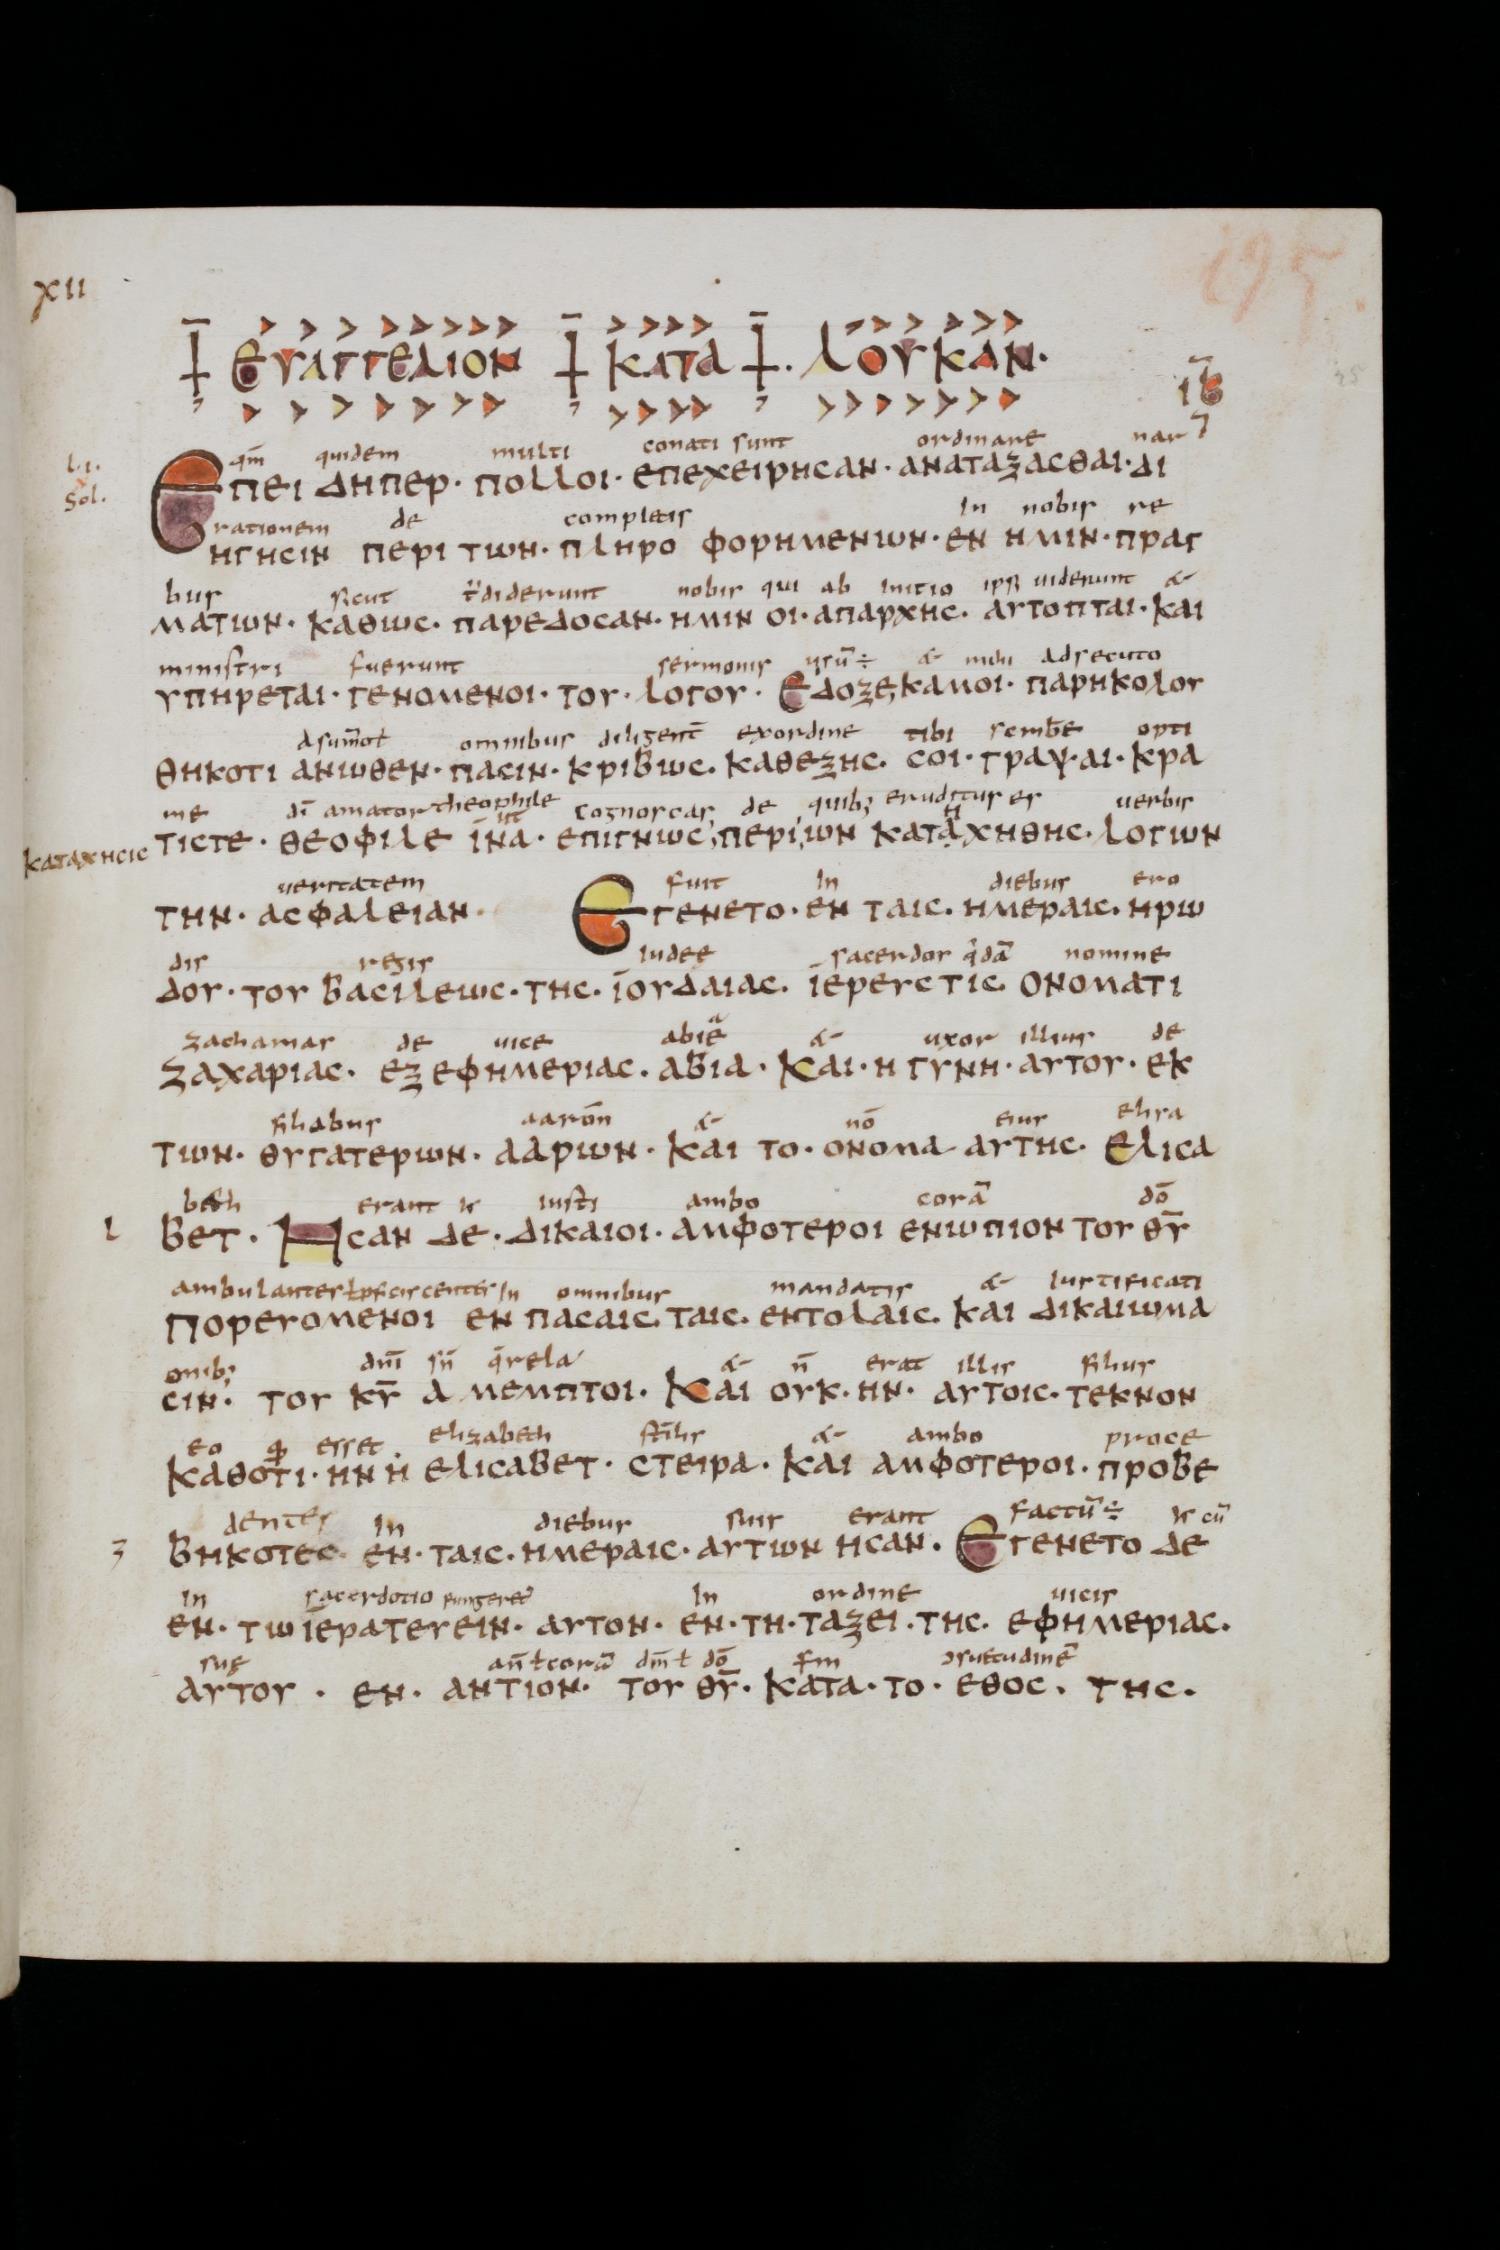 195
xii
‡ ΕΥΑΓΓΕΛΙΟΝ ‡ ΚΑΤΑ ‡· ΛΟΥΚΑΝ·
ιβ
qm̄ quidem multi conati sunt ordinare nar
Sol.
ΕΠΕΙ ΔΗΠΕΡ· ΠΟΛΛΟΙ· ΕΠΕΧΕΙΡΗCΑΝ· ΑΝΑΤΑΞΑCΘΑΙ· ΔΙ
rationem de completis in nobis re
ΗΓΗCΙΝ ΠΕΡΙ ΤΩΝ· ΠΛΗΡΟ ΦΟΡΗΜΕΝΩΝ· ΕΝ ΗΜΙΝ· ΠΡΑΓ
bus sicut t̄diderunt nobis qui ab initio ipsi uiderunt &
ΜΑΤΩΝ· ΚΑΘΩC· ΠΑΡΕΔΟCΑΝ· ΗΜΙΝ ΟΙ· ΑΠΑΡΧΗC· ΑΥΤΟΠΤΑΙ· ΚΑΙ
ministri fuerunt sermonis uisū ÷ & mihi adsecuto
ΥΠΗΡΕΤΑΙ· ΓΕΝΟΜΕΝΟΙ· ΤΟΥ· ΛΟΓΟΥ· ΕΔΟΞΕ, ΚΑΜΟΙ· ΠΑΡΗΚΟΛΟΥ
omnibus diligent̄ exordine tibi scrib̄e opti
ΘΗΚΟΤΙ ΑΝΩΘΕΝ· ΠΑCΙΝ· ΚΡΙΒΩC· ΚΑΘΕΞΗC· CΟΙ· ΓΡΑΨ·ΑΙ· ΚΡΑ
me dī amator theophile ut cognoscas de quib; eruditus es uerbis
ΤΙCΤΕ· ΘΕΟΦΙΛΕ ΪΝΑ· ΕΠΙΓΝΩC, ΠΕΡΙ, ΩΝ ΚΑΤΑΧΗΘΗC· ΛΟΓΩΝ
ΚΑΤΑΧΗCΙC
ueritatem fuit in diebus ero
ΤΗΝ· ΑCΦΑΛΕΙΑΝ· ΕΓΕΝΕΤΟ· ΕΝ ΤΑΙC· ΗΜΕΡΑΙC· ΗΡΩ
dis regis iudeę sacerdos q̄dā nomine
ΔΟΥ· ΤΟΥ ΒΑCΙΛΕΩC· ΤΗC· ΪΟΥΔΑΙΑC· ΪΕΡΕΥC ΤΙC· ΟΝΟΜΑΤΙ
zacharias de uice abie & uxor illius de
ΖΑΧΑΡΙΑC· ΕΞ ΕΦΗΜΕΡΙΑC· ΑΒΙΑ· ΚΑΙ· Η ΓΥΝΗ· ΑΥΤΟΥ· ΕΚ
filiabus aarōn & nō eius elisa
ΤΩΝ· ΘΥΓΑΤΕΡΩΝ· ΑΑΡΩΝ· ΚΑΙ ΤΟ· ΟΝΟΜΑ ΑΥΤΗC· ΕΛΙCΑ
beth erant iusti ambo corā dō
ΒΕΤ· ΗCΑΝ ΔΕ· ΔΙΚΑΙΟΙ· ΑΜΦΟΤΕΡΟΙ ΕΝΩΠΙΟΝ ΤΟΥ ΘῩ
ambulantes in omnibus mandatis & iustificati
ΠΟΡΕΥΟΜΕΝΟΙ ΕΝ ΠΑCΑΙC· ΤΑΙC· ΕΝΤΟΛΑΙC· ΚΑΙ ΔΙΚΑΙΩΜΑ
onib; dn̄i sn̄ q̄rela & n̄ erat illis filius
CΙΝ· ΤΟΥ ΚῩ Α ΜΕΜΠΤΟΙ· ΚΑΙ ΟΥΚ· ΗΝ· ΑΥΤΟΙC· ΤΕΚΝΟΝ
eo qđ esset elizabeth st̄ilis & ambo proce
ΚΑΘΟΤΙ· ΗΝ Η ΕΛΙCΑΒΕΤ· CΤΕΙΡΑ· ΚΑΙ ΑΜΦΟΤΕΡΟΙ· ΠΡΟΒΕ
dentes in diebus suis erant factū ÷ cū
ΒΗΚΟΤΕC· ΕΝ· ΤΑΙC· ΗΜΕΡΑΙC· ΑΥΤΩΝ ΗCΑΝ· ΕΓΕΝΕΤΟ ΔΕ
in sacerdotio fungeret̄ in ordine uicis
ΕΝ· ΤΩ ΪΕΡΑΤΕΥΕΙΝ· ΑΥΤΟΝ· ΕΝ· ΤΗ· ΤΑΞΕΙ· ΤΗC· ΕΦΗΜΕΡΙΑC·
suę an̄ ł corā dm̄ ł dō scm ɔsuetudinē
ΑΥΤΟΥ· ΕΝ· ΑΝΤΙΟΝ· ΤΟΥ ΘῩ· ΚΑΤΑ· ΤΟ· ΕΘΟC· ΤΗC·